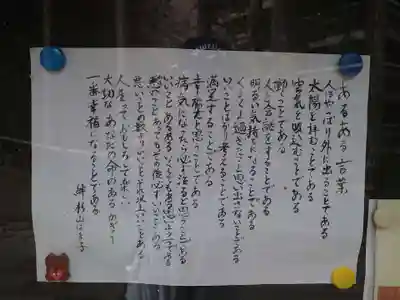 あるある言葉
人はやっぱり外に出ることである
太陽を拝むことである
空気を吸いこむことである
動くことである
人と会話をすることである
明るい気持ちになることである
くよくよ過ぎたこと思い出さないことである
いいことばかり考えることである
満足することである
幸福だと思うことである
病気になったら必ず治ると思うことである
いいことある
悪いことあってもその後必ずいいことある
悪いことの数よりいいことの
人生っておもしろくて楽しい
大切なあなたの命のあるかぎり
一番幸福になることである